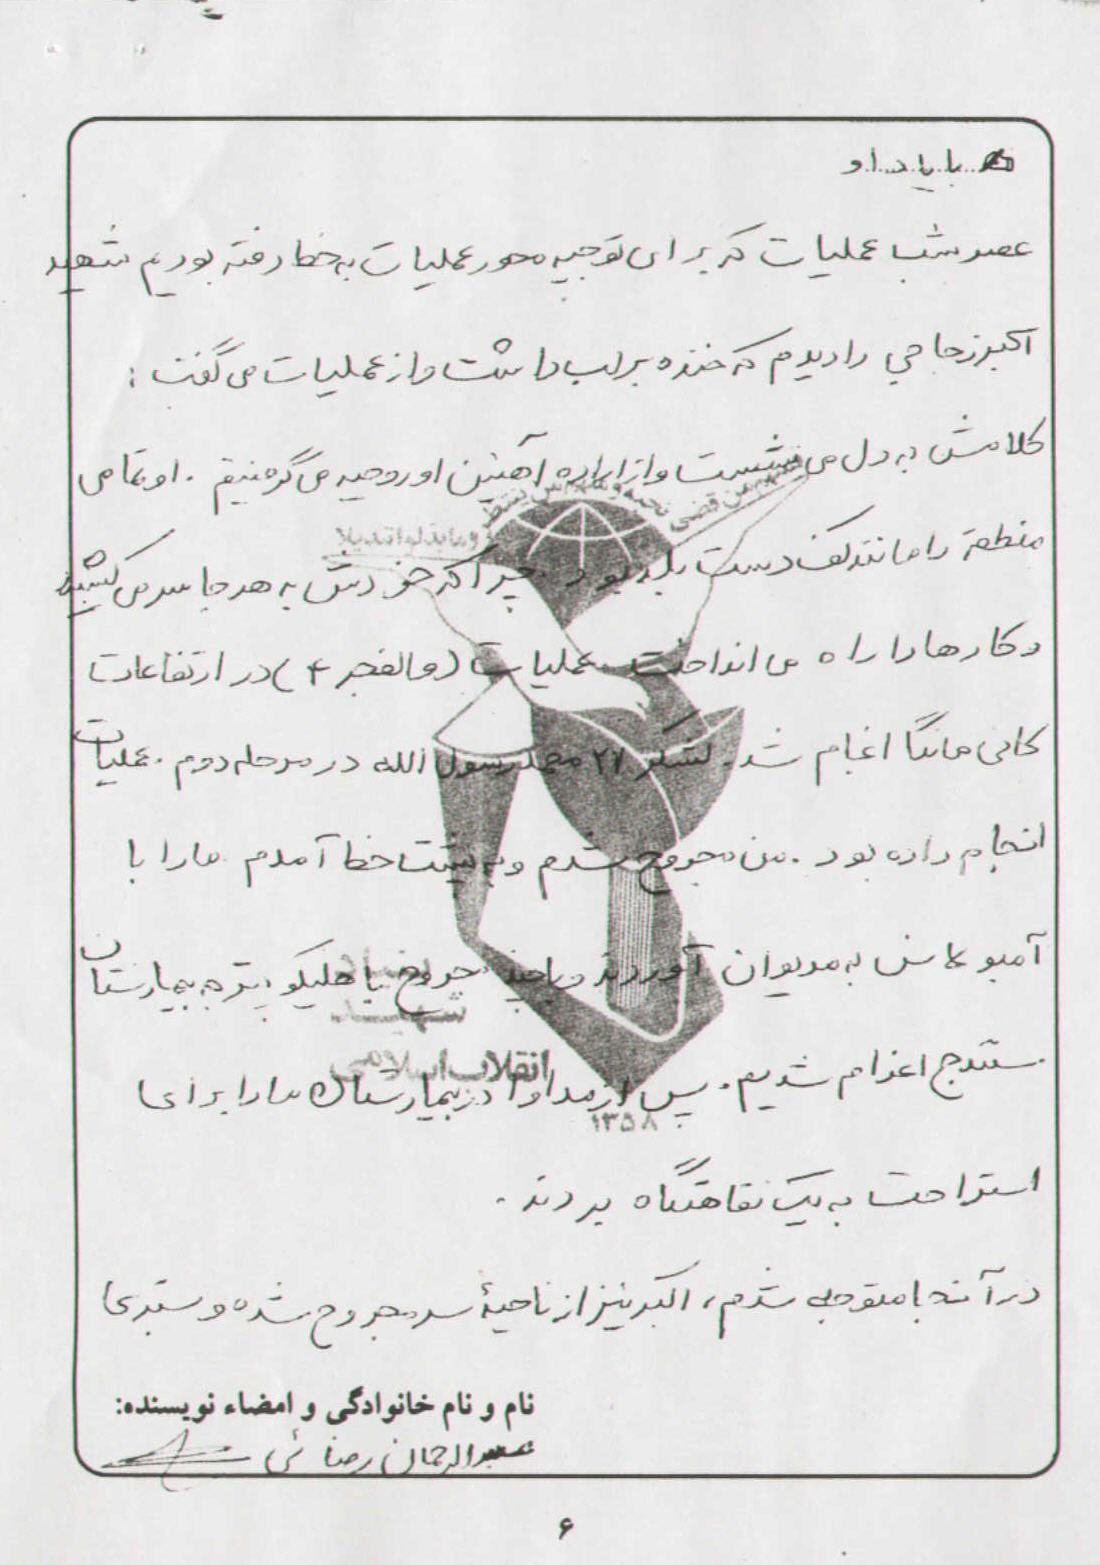 با یاد او
عصر شب عملیات که برای توجیه محور عملیات به خط رفته بودیم شهید
اکبر زجاجی را دیدم که خنده بر لب داشت و از عملیات می گفت :
کلامش به دل می نشست و از اراده آهنین او روحیه می گرفتیم . او تمامی
منطقه را مانند کف دست بلد بود . چرا که خودش به هر جا سر می کشید
و کارها را راه می انداخت . عملیات (والفجر ۴) در ارتفاعات
کانی مانگا انجام شد . لشکر ۲۷ محمد رسول الله در مرحله دوم . عملیات
انجام داده بود . من مجروح شدم و به پشت خط آمدم . ما را با
آمبولانس به مریوان آوردند و با چند مجروح با هلیکوپتر به بیمارستان
سنندج اعزام شدیم . پس از مداوا در بیمارستان ما را برای
استراحت به یک نقاهتگاه بردند .
در آنجا متوجه شدم ، اکبر نیز از ناحیهٔ سر مجروح شده و بستری
نام و نام خانوادگی و امضاء نویسنده:
عبدالرحمان رضائی
۶
من قضی نحبه و منهم من ینتظر و ما بدلوا تبدیلا
بنیاد
شهید
انقلاب اسلامی
۱۳۵۸